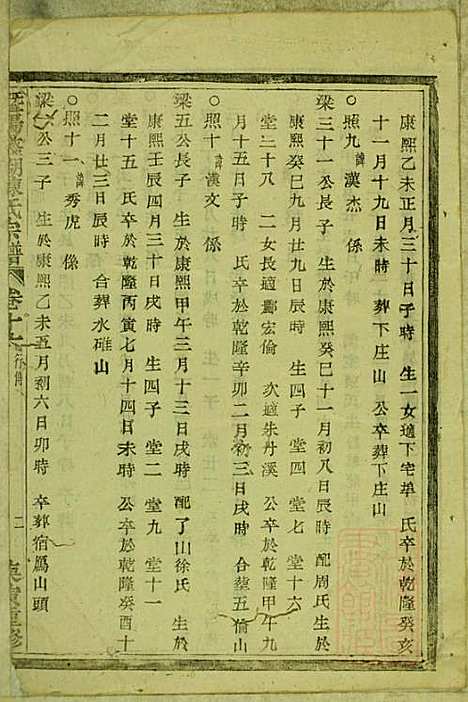 康熙乙未正月三十日子時 生一女適下宅埠 氏卒於乾隆癸亥
十一月十九日未時 葬下庄山 公卒葬下庄山
○照九諱漢杰 係
梁三十一公長子 生於康熙癸巳十一月初八日辰時 配周氏生於
康熙癸巳九月廿九日辰時 生四子 堂七 堂十六
堂二十八 二女長適酈宏倫 次適朱丹溪 公卒於乾隆甲午九
月十五日子時 氏卒於乾隆辛卯二月初三日戌時 合葬五倫山
○照十諱漢文 係
梁五公長子 生於康熙甲午三月十三日戌時 配了山徐氏 生於
康熙壬辰四月三十日戌時 生四子 堂二 堂九 堂十一
堂十五 氏卒於乾隆丙寅七月十四日未時 公卒於乾隆癸酉十
二月廿三日辰時 合葬水碓山
○照十一諱秀虎 係
梁 公三子 生於康熙乙未五月初六日卯時 卒葬宿鳥山頭
暨陽 湖陳氏宗譜 卷十 行傳 二